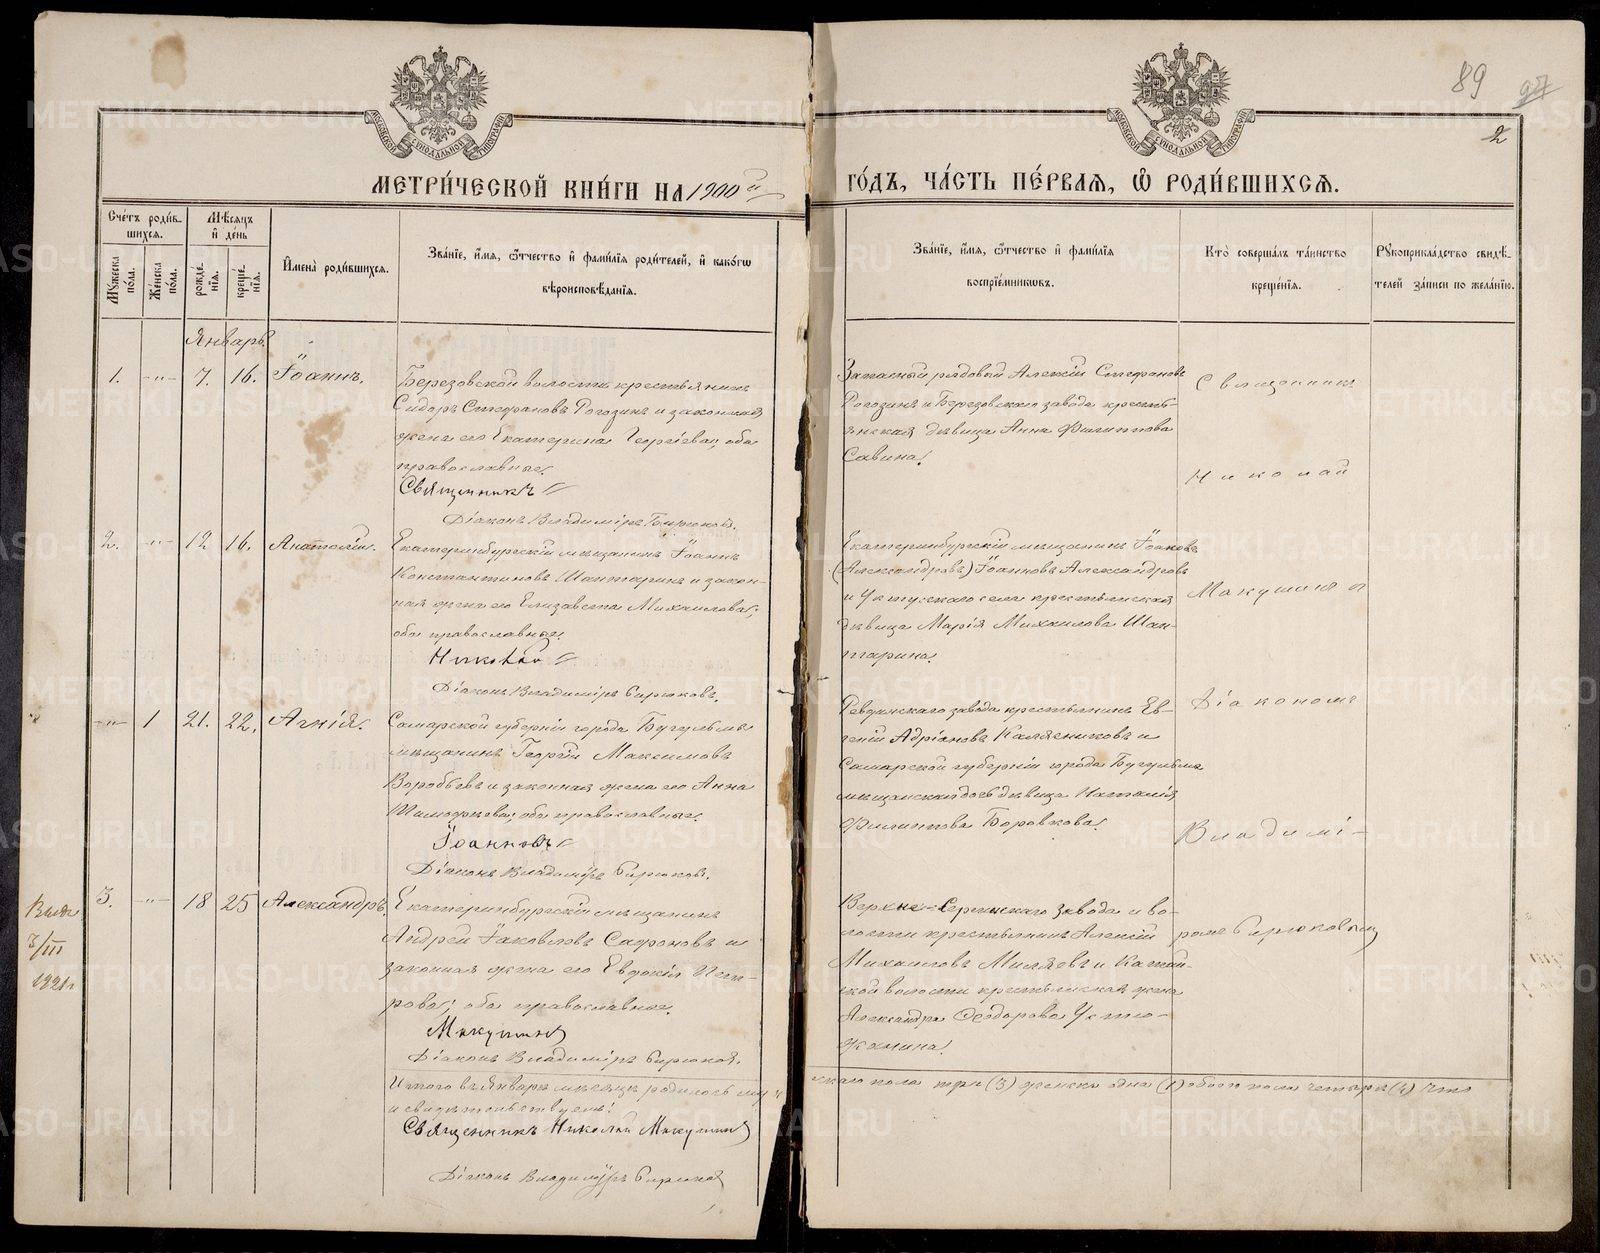 МЕТРИ́ЧЕСКОЙ КНИ́ГИ НА 1900й ГО́ДЪ, ЧА́СТЬ ПЕ́РВАЯ, Ѡ РОДИ́ВШИХСѦ.
89
2
Сче́тъ роди́в-шихсѧ.
Мѣ́сѧцъ и҆ де́нь
Мꙋ́жеска по́ла.
Же́нска по́ла.
рожде́-нїѧ.
креще́-нїѧ.
И҆мена̀ роди́вшихсѧ.
Зва́нїе, и҆́мѧ, ѻ҆́тчество и҆ фами́лїѧ роди́телей, и҆ како́гѡ
вѣроисповѣ́данїѧ.
Зва́нїе, и҆́мѧ, ѻ҆́тчество и҆ фами́лїѧ
воспрїе́мникѡвъ.
Кто̀ соверша́лъ та́инство
креще́нїѧ.
Рꙋкоприкла́дство свидѣ́-
телей за́писи по жела́нїю.
Январь.
1. -"- 7. 16. Іоаннъ.
Березовской волости крестьянинъ
Сидоръ Стефановъ Рогозинъ и законная
жена его Екатерина Георгіева; оба
православные.
Священникъ
Діаконъ Владиміръ Бирюковъ.
Запасный рядовый Алексій Стефановъ
Рогозинъ и Березовскаго завода кресть-
янская дѣвица Анна Филиппова
Савина.
2. -"- 12 16. Анатолій.
Екатеринбургскій мѣщанинъ Іоаннъ
Константиновъ Шантаринъ и закон-
ная жена его Елизавета Михаилова;
оба православные.
Николай
Діаконъ Владиміръ Бирюковъ.
Екатеринбургскій мѣщанинъ Іоаковъ
(Александровъ) Іоанновъ Александровъ
и Уктусскаго села крестьянская
дѣвица Марія Михаилова Шан-
тарина.
-"- 1 21. 22. Агнія.
Самарской губерніи города Бугульмы
мѣщанинъ Георгій Максимовъ
Воробьевъ и законная жена его Анна
Тимофеева; оба православные.
Іоанновъ
Діаконъ Владиміръ Бирюковъ.
Ревдинскаго завода крестьянинъ Ев-
геній Адріановъ Калѧениковъ и
Самарской губерніи города Бугульмы
мѣщанская дочь дѣвица Наталія
Филиппова Боровкова.
3. -"- 18 25 Александръ.
Екатеринбургскій мѣщанинъ
Андрей Іаковлевъ Сафоновъ и
законная жена его Евдокія Пет-
рова; оба православные.
Макушинъ
Діаконъ Владиміръ Бирюковъ.
Верхне-Сергинскаго завода и во-
лости крестьянинъ Алексій
Михаиловъ Миляевъ и
ской волости крестьянская жена
Александра Ѳеодорова Устю-
жанина.
Священникъ
Николай
Макушинъ и
Діаконъ
Владимі-
ромъ Бирюковымъ
3/III
1921г
Итого въ Январѣ мѣсяцѣ родилось муж-
скаго пола три (3) женска одна (1) обоего пола четыре (4) что
и свидѣтельствуемъ:
Священникъ Николай Макушинъ
Діаконъ Владиміръ Бирюковъ
METRIKI.GASO-URAL.RU